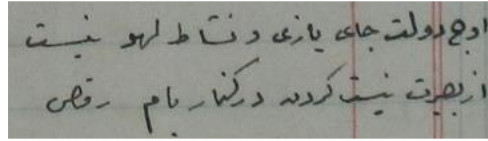 اوج دولت جای بازی و نشاط لهو نیست
از بصیرت نیست کردن در کنار بام رقص